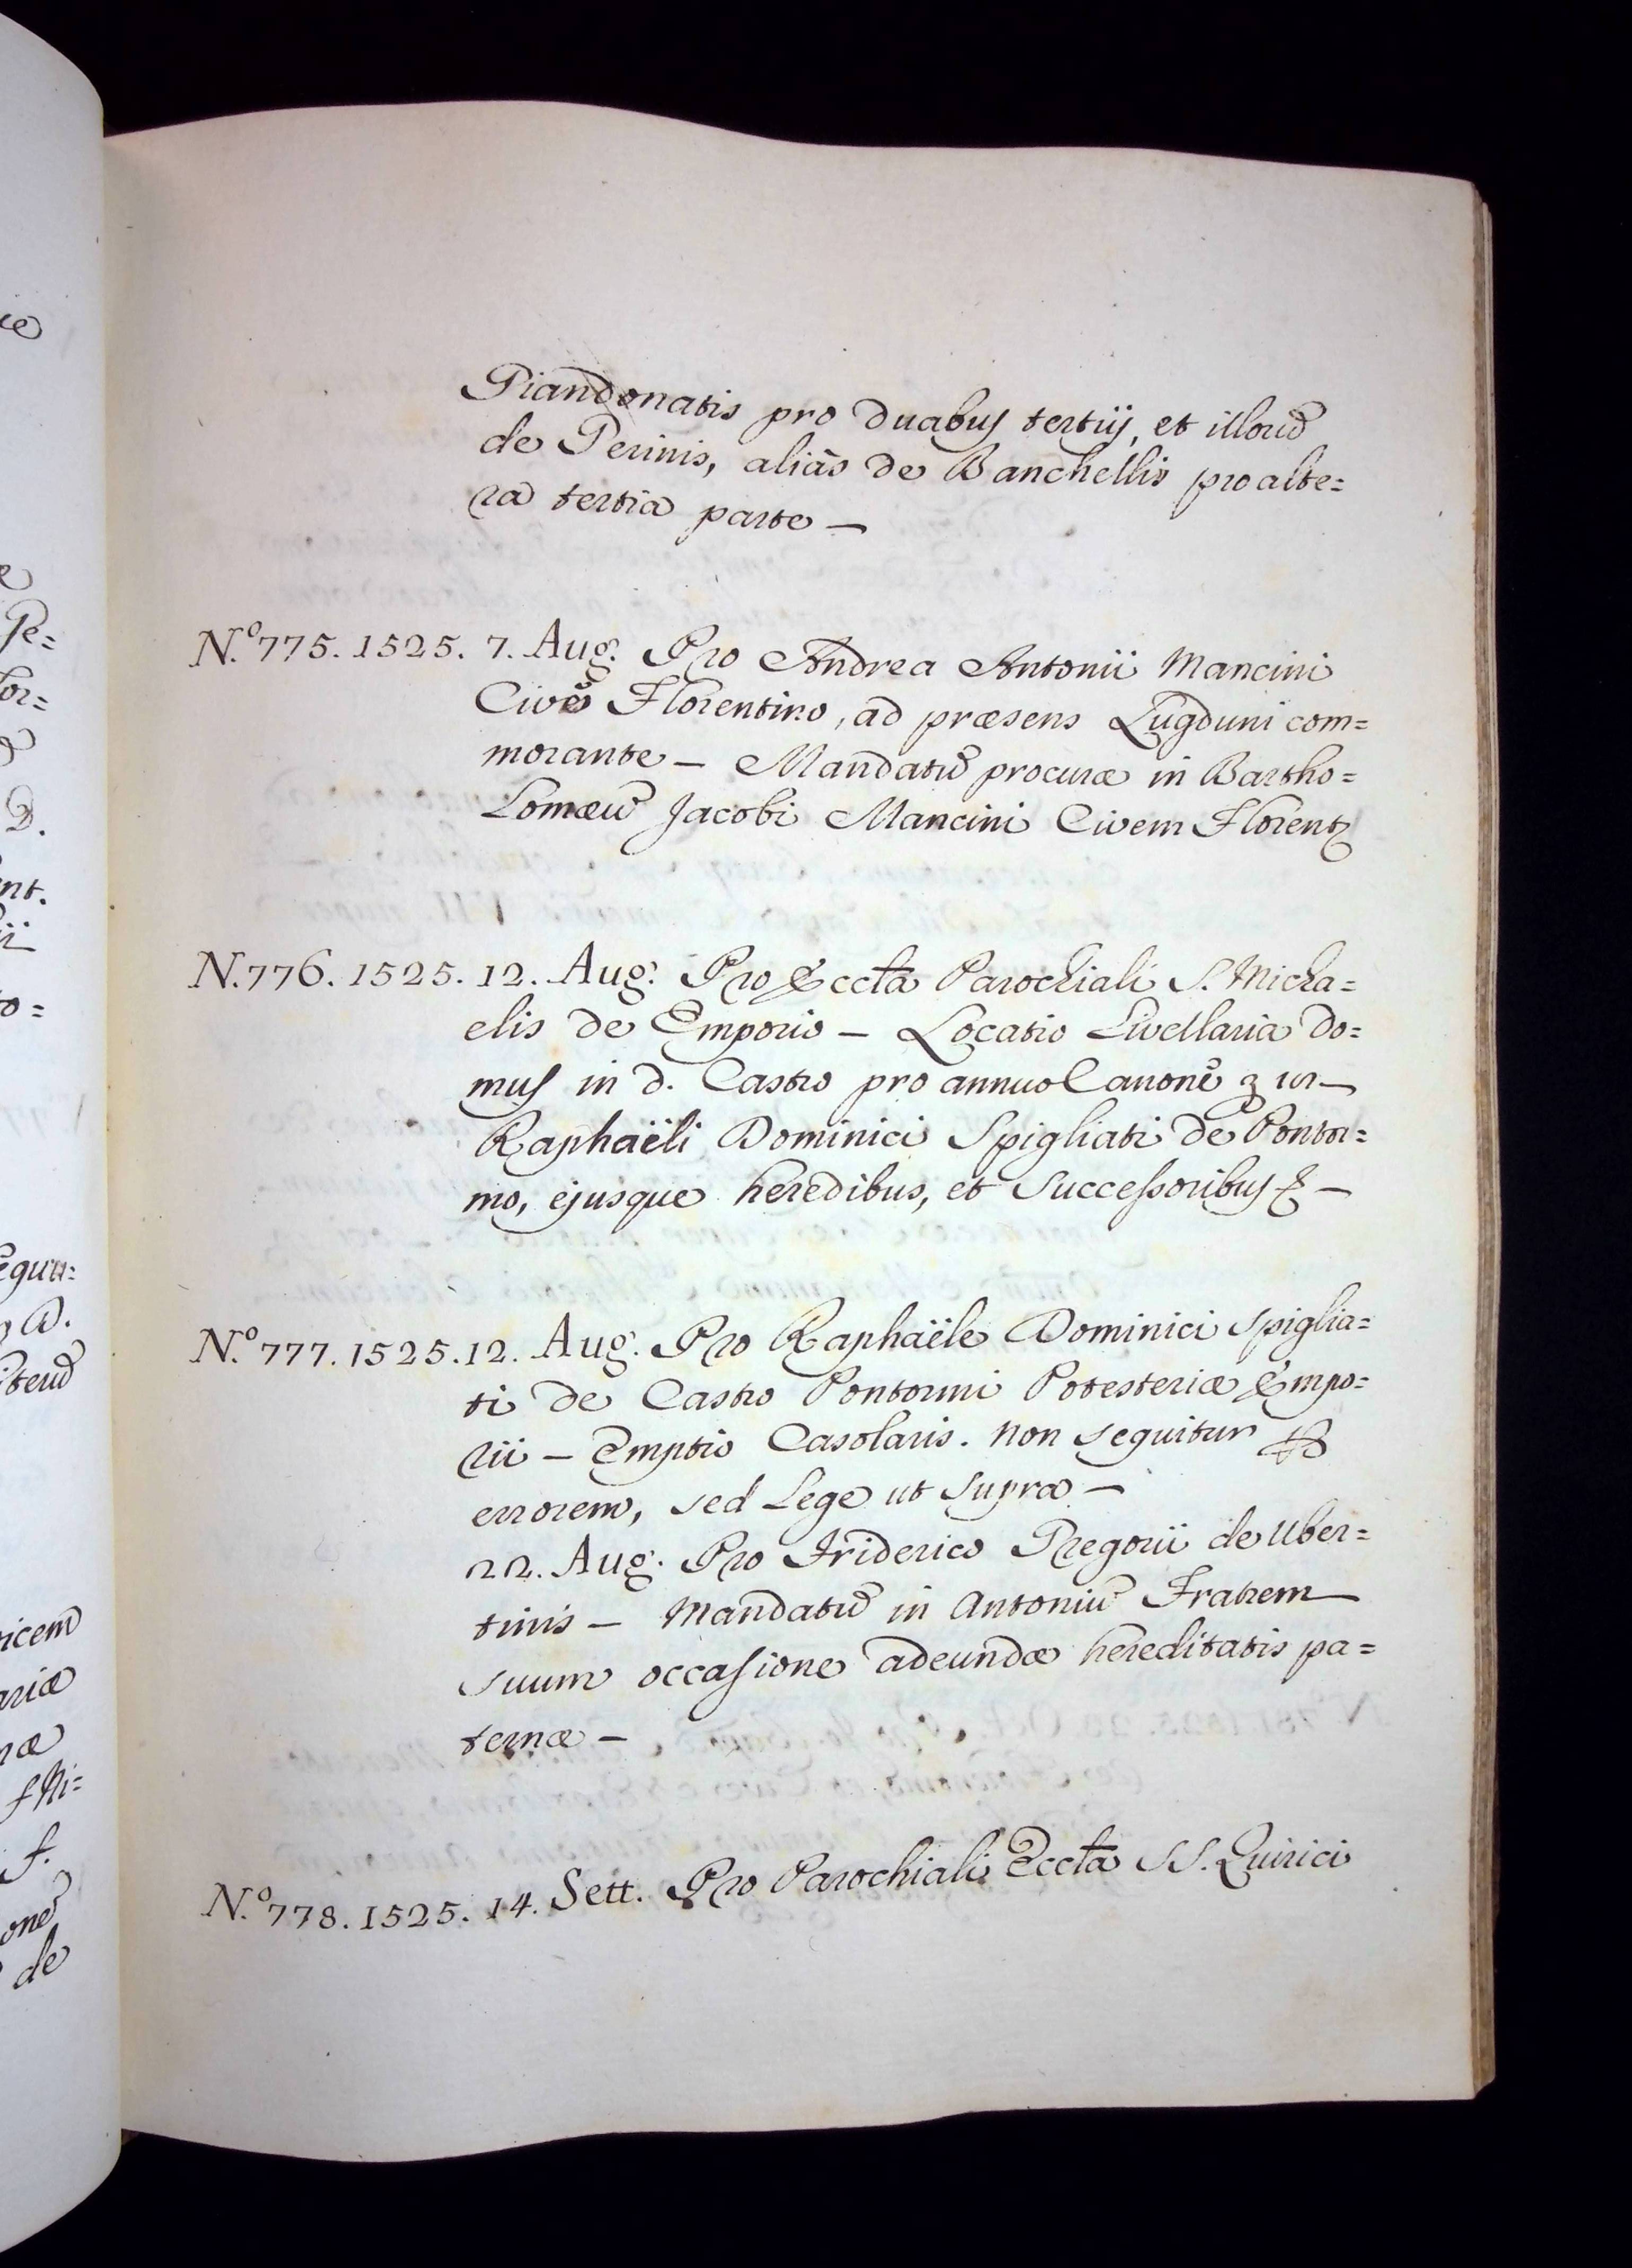 Piandonatis pro duabus tertiis, et illorũ
de Perinis, aliàs de Banchellis pro alte=
ra tertia parte —
N.º 775. 1525. 7. Aug. Pro Andrea Antonii Mancini
Cive Florentino, ad præsens Lugduni com=
morante — Mandatũ procuræ in Bartho=
lomæũ Jacobi Mancini Civem Florent
N. 776. 1525. 12. Aug. Pro Eccta Parochiali S. Micha=
elis de Emporio — Locatio Livellaria do=
mus in d. Castro pro annuo Canone
Raphaëli Dominici Spigliati de Pontor=
mo, ejusque heredibus, et Successoribus &c —
N.º 777. 1525. 12. Aug. Pro Raphaële Dominici Spiglia=
ti de Castro Pontormi Potesteriæ Empo=
rii — Emptio Casolaris. Non sequitur
errorem, sed Lege ut supra —
22. Aug. Pro Friderico Gregorii de Uber=
tinis — Mandatũ in Antoniũ Fratrem
suum occasione adeundæ hereditatis pa=
ternæ —
N.º 778. 1525. 14. Sett. Pro Parochiali Eccta SS. Quirici
ce
e
Pe=
lor=
D.
nt.
ii
o=
equu=
D.
iterũ
ricem
ariæ
næ
f.
one
de